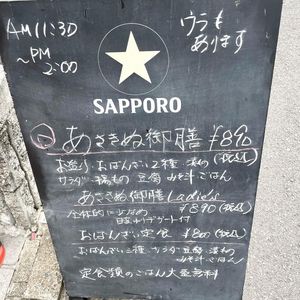 AM 11:30
～PM
2:00
ウラも
あります
SAPPORO
あさぎぬ御膳 ¥890
お造り おばんざい2種 漬物 (税込)
サラダ 揚もの 豆腐 みそ汁 ごはん
あさぎぬ御膳 Ladie's
全体的に少なめ ¥890 (税込)
デザート付
おばんざい定食 ¥800 (税込)
おばんざい三種 サラダ 豆腐 漬もの
みそ汁 ごはん
定食類のごはん大盛無料